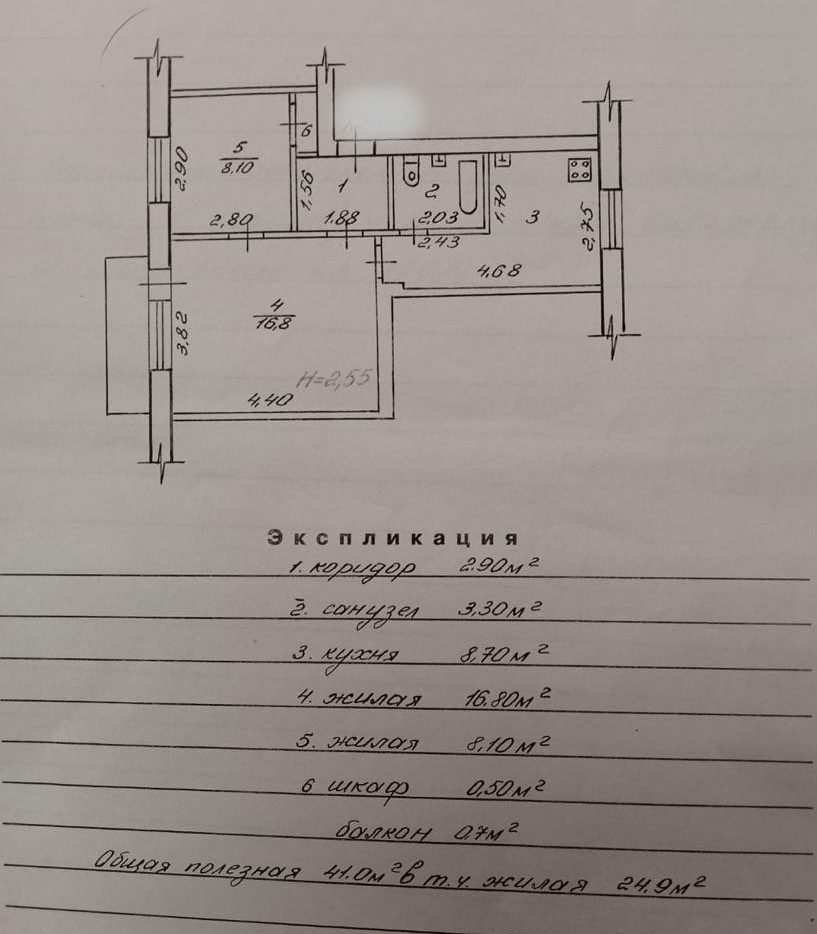 5
8,10
6
2,90
1,56
1
2
1,70
3
2,80
1.88
2,03
2,43
2,75
4,68
4
16,8
3,82
H=2,55
4,40
Экспликация
1. коридор 2.90м²
2. санузел 3,30м²
3. кухня 8,70м²
4. жилая 16.80м²
5. жилая 8,10м²
6 шкаф 0,50м²
балкон 0.7м²
Общая полезная 41.0м² в т.ч. жилая 24.9м²